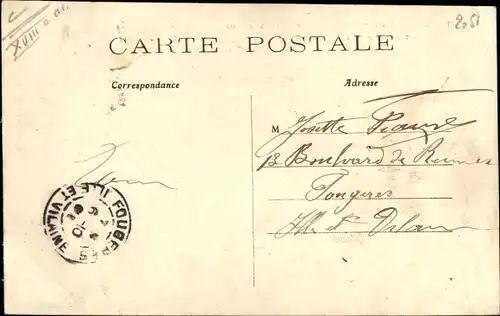 XVIII e a
2051
CARTE POSTALE
Correspondance
Adresse
M Josette
13 Boulevard de Rennes
Fougeres
Ille et Vilaine
FOUGERES
ILLE ET VILAINE